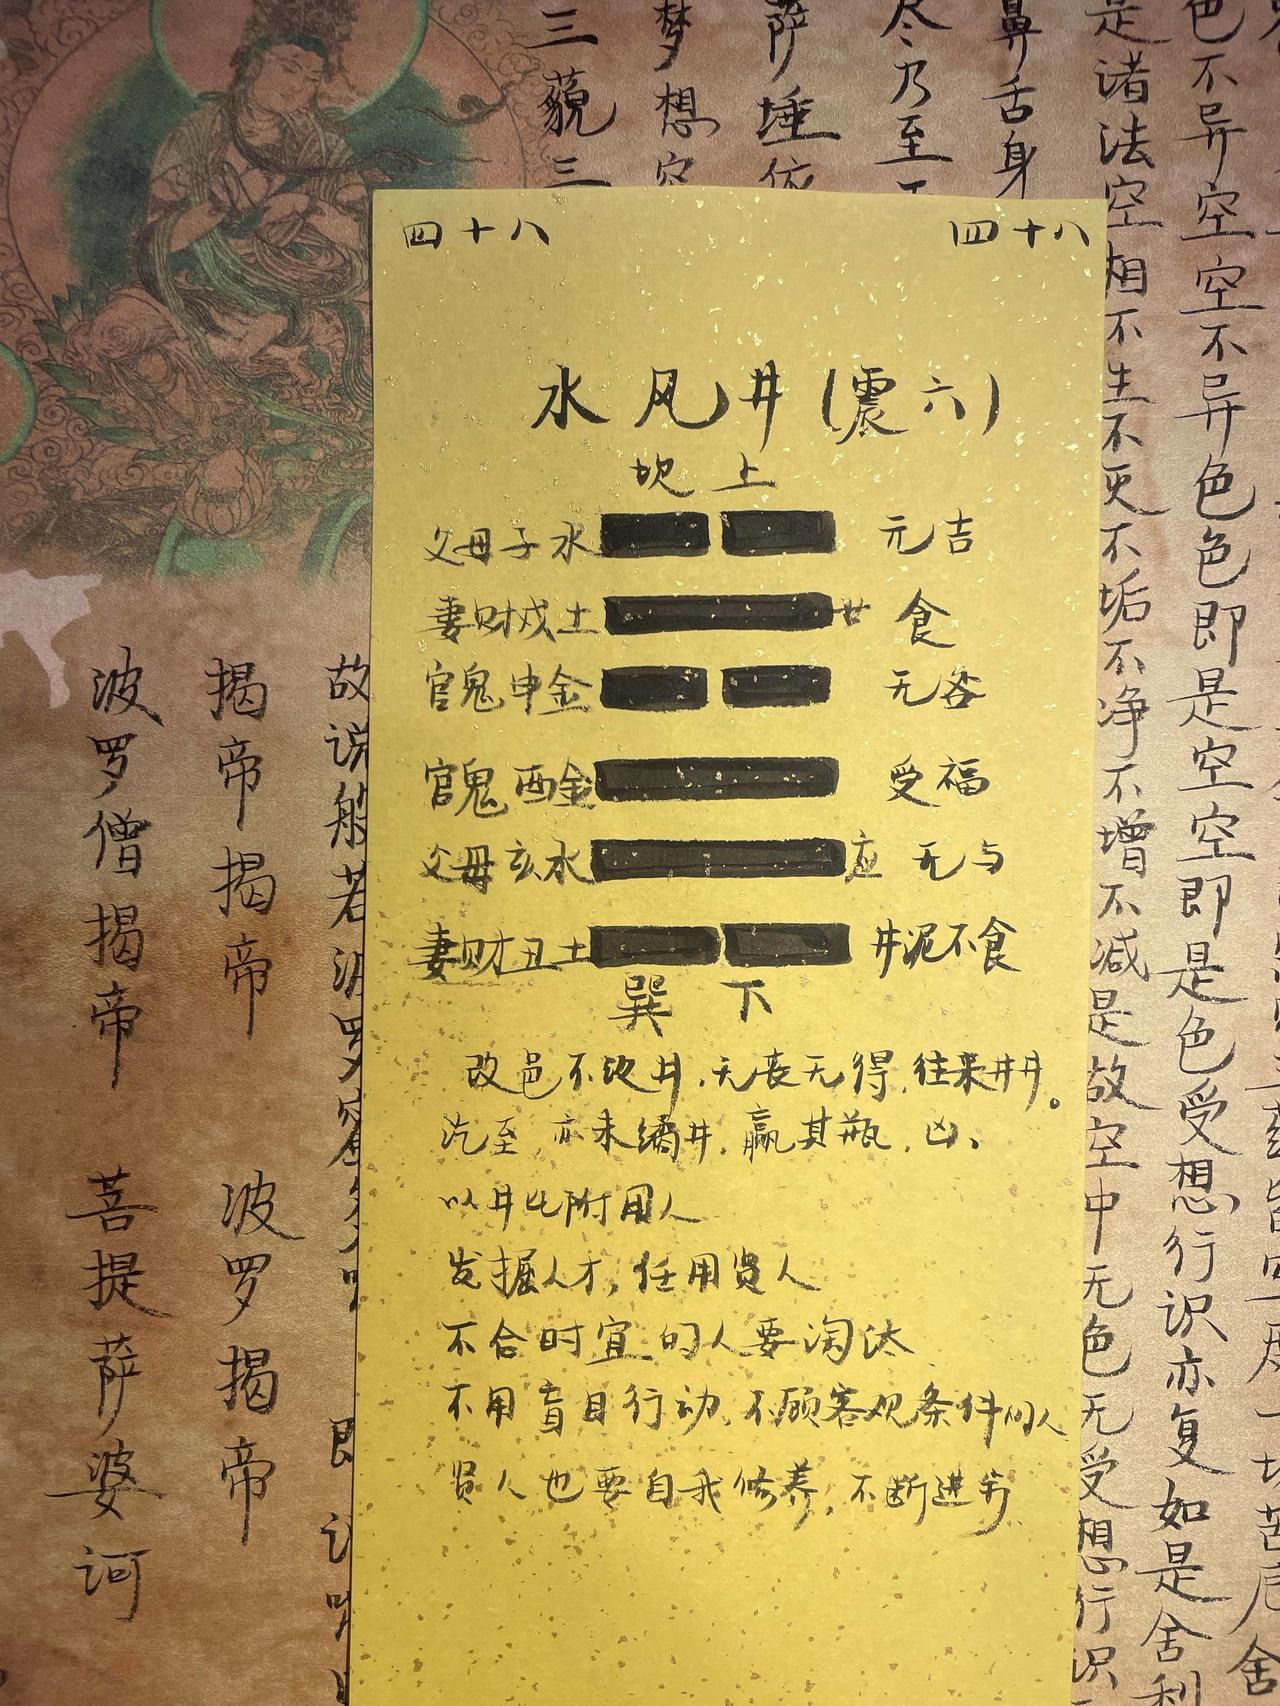 四十八 四十八
水风井(震六)
坎上
父母子水 元吉
妻财戌土 世 食
官鬼申金 无咎
官鬼酉金 受福
父母亥水 应 无与
妻财丑土 井泥不食
巽下
改邑不改井,无丧无得,往来井井。
汔至,亦未繘井,羸其瓶,凶、
以井比附用人
发掘人才,任用贤人
不合时宜的人要淘汰
不用盲目行动、不顾客观条件的人
贤人也要自我修养,不断进步
色不异空空不异色色即是空空即是色受想行识亦复如是舍利
是诸法空相不生不灭不垢不净不增不减是故空中无色无受想行识
鼻舌身
尽乃至
萨埵依
梦想
三藐三
故说般若波罗蜜多
揭帝揭帝 波罗揭帝
波罗僧揭帝 菩提萨婆诃